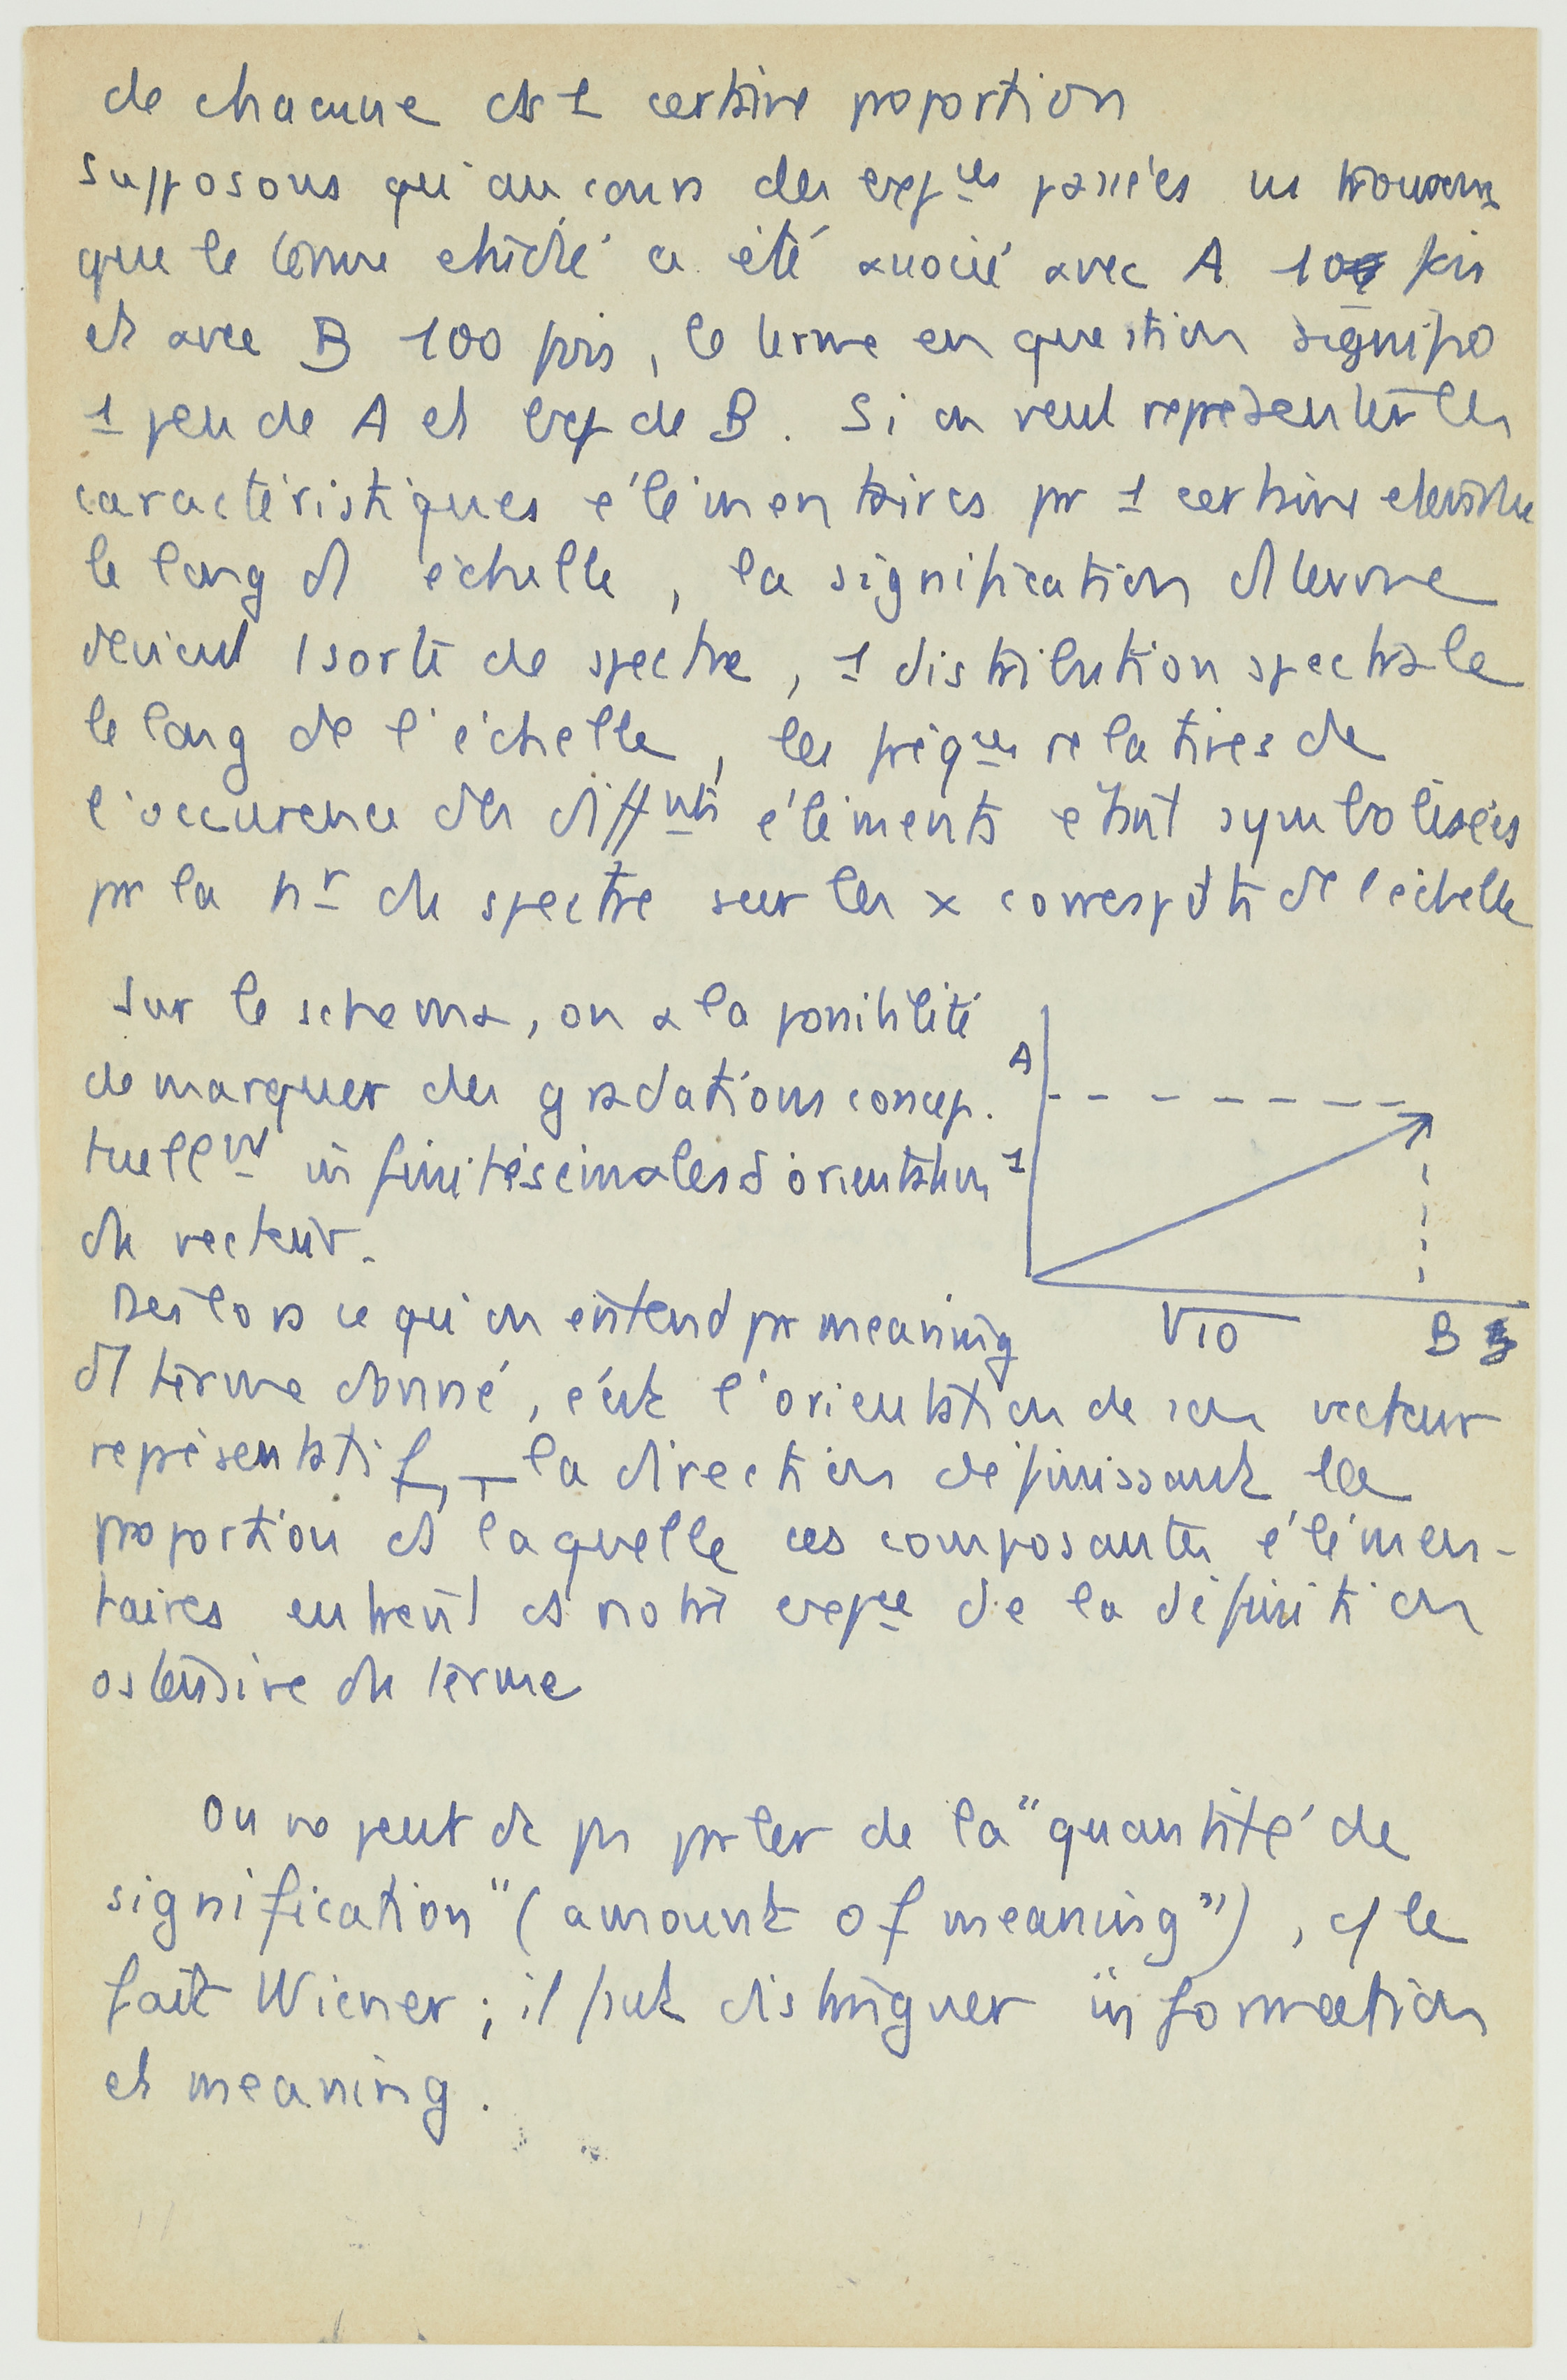 de chacune ds 1 certaine proportion
Supposons qu'au cours des expces passées ns trouvions
que le terme étudié a été associé avec A 10 fois
et avec B 100 fois, le terme en question signifie
1 peu de A et bcp de B. Si on veut représenter les
caractéristiques élémentaires pr 1 certaine étendue
le long d1 échelle, la signification d1 terme
devient 1 sorte de spectre, 1 distribution spectrale
le long de l'échelle, les fréqces relatives de
l'occurence des difffnts éléments étant symbolisées
pr la hr du spectre sur les x correspdts de l'échelle
Sur le schema, on a la possibilité
A
de marquer des gradations concep.
tuellmt infinitésimales d'orientation
1
du vecteur.
Dès lors ce qu'on entend pr meaning
√10
B
d1 terme donné, c'est l'orientation de son vecteur
représentatif, — la direction définissant la
proportion ds laquelle ces composantes élémen-
taires entrent ds notre expce de la définition
ostensive du terme
On ne peut dc pas parler de la "quantité de
signification" (amount of meaning"), c/ le
fait Wiener ; il faut distinguer information
et meaning.